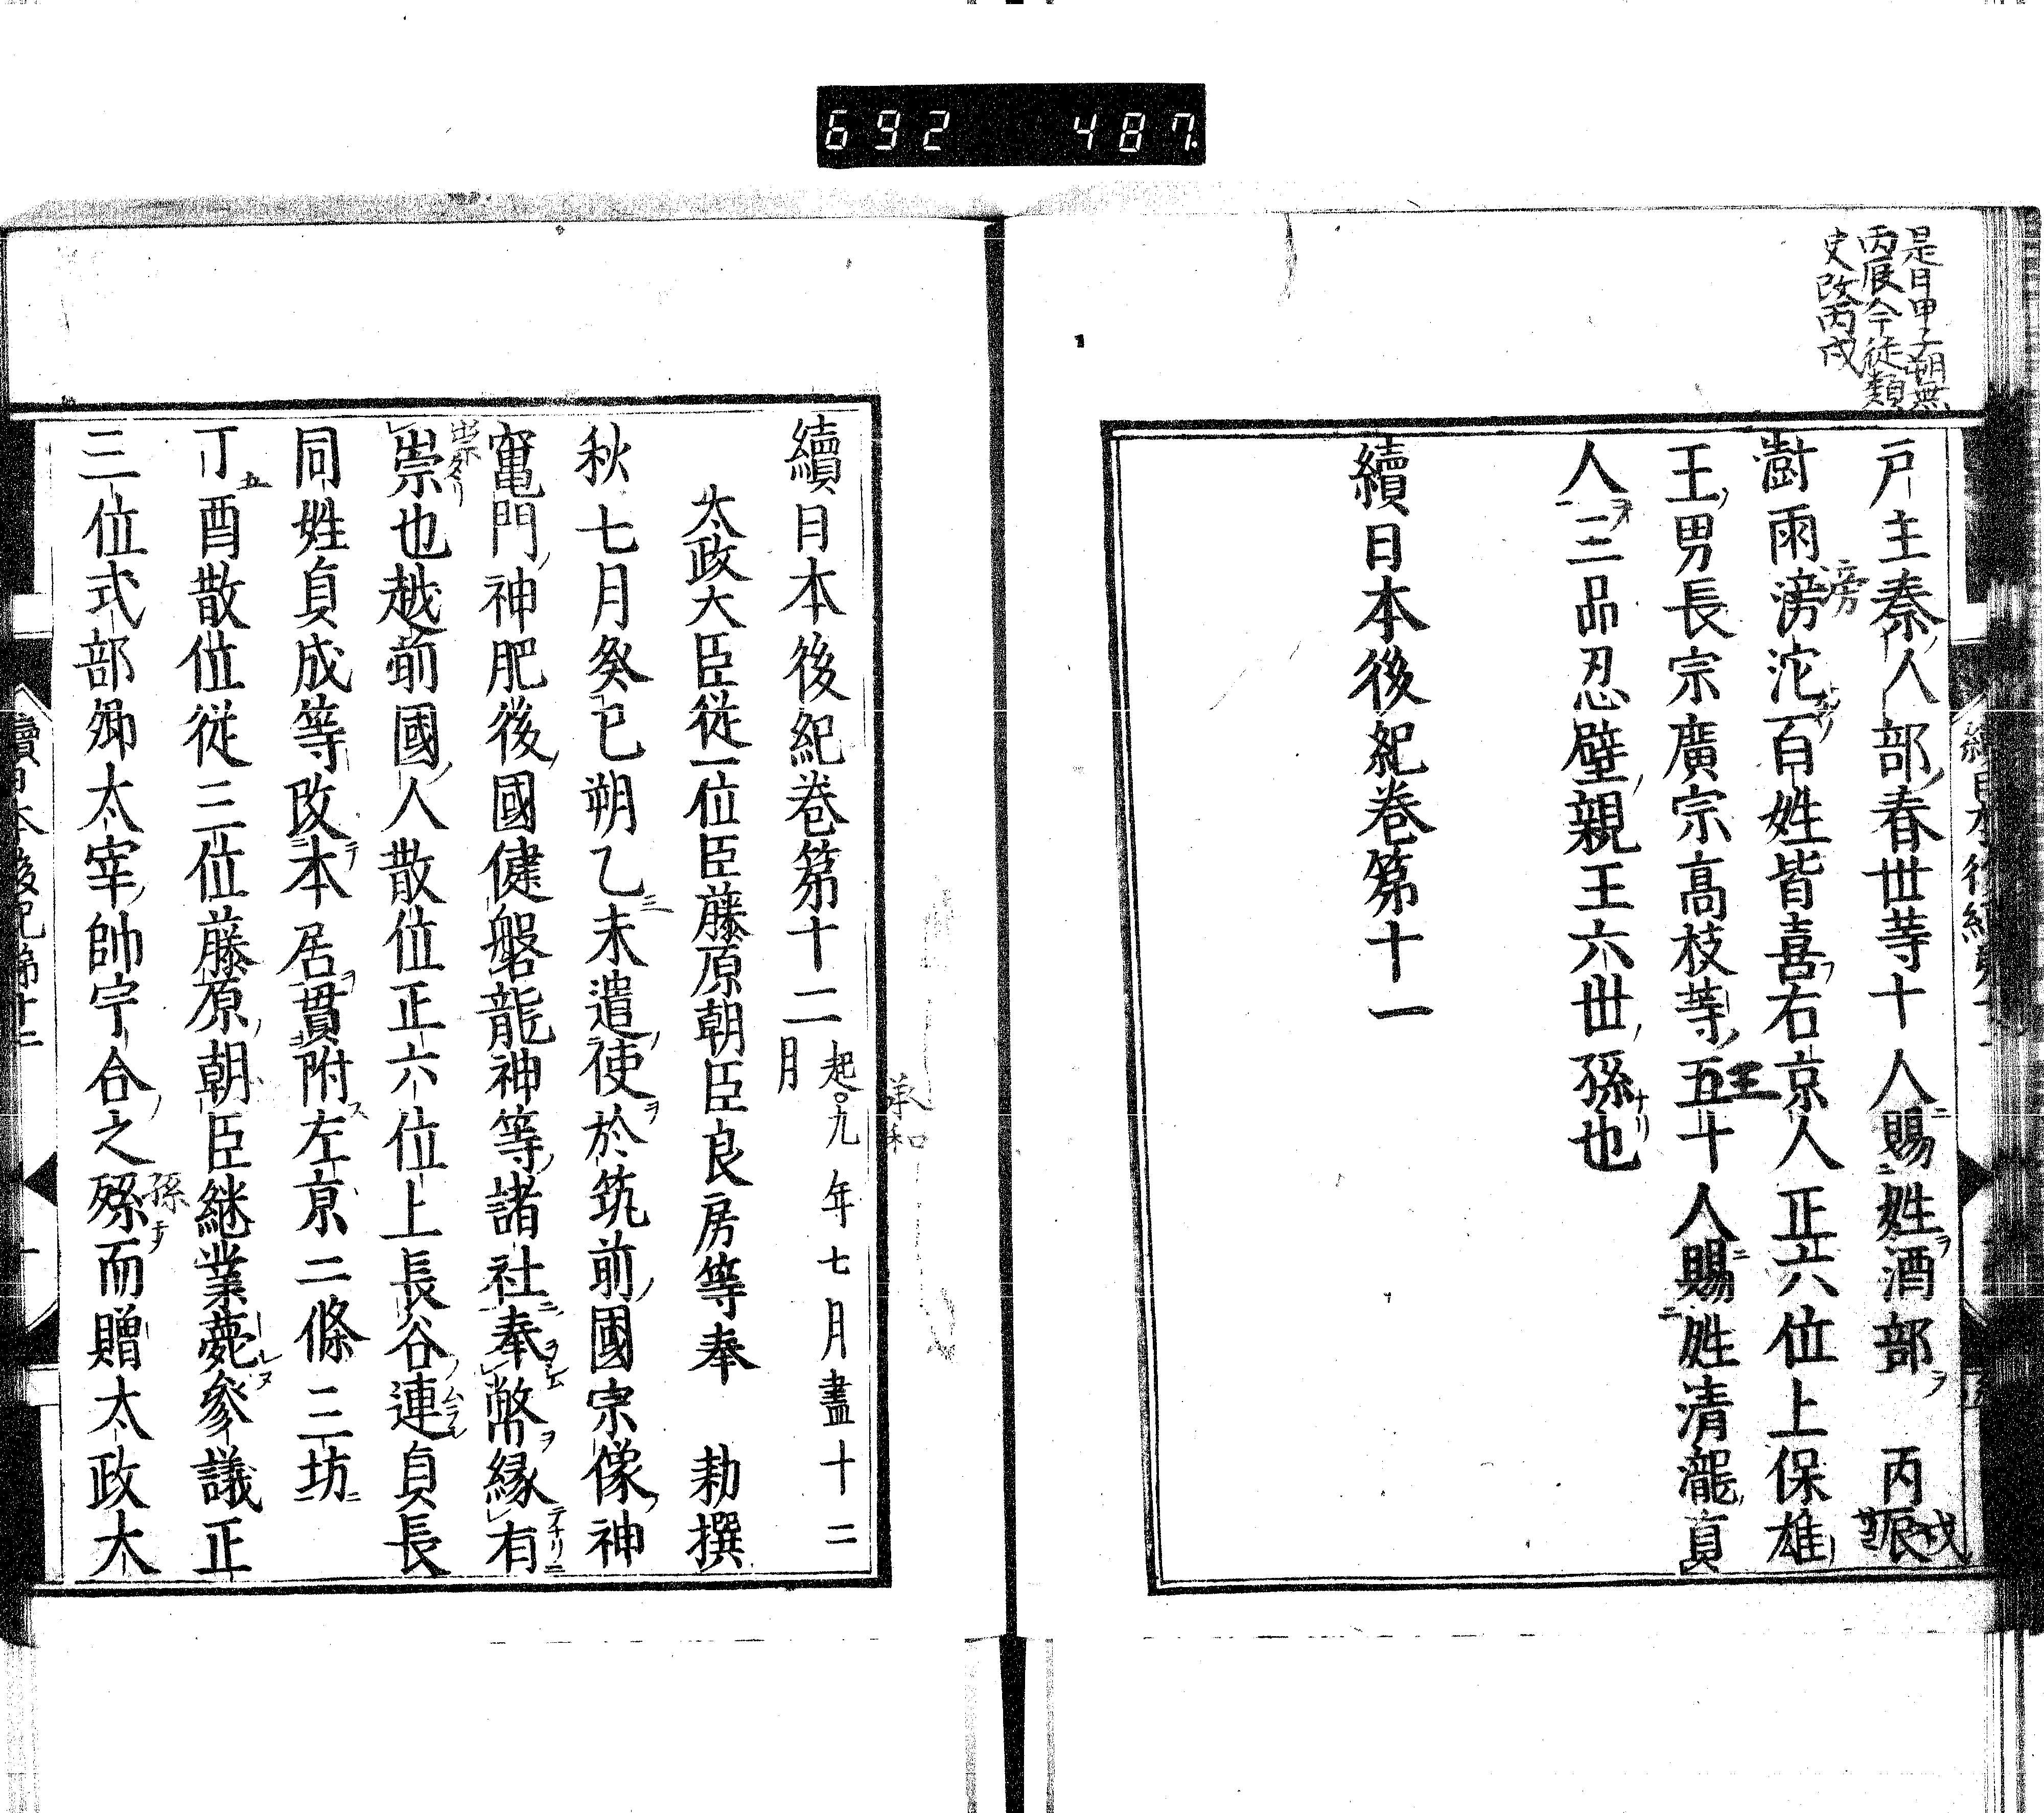 692 487
是日甲子朔無
丙辰今従類
史改丙戌
戸主秦人部春世等十人賜姓酒部 丙辰
戌
澍雨滂沱百姓皆喜右京人正六位上保雄
滂
王男長宗廣宗高枝等五十人賜姓清瀧眞
王
人三品忍壁親王六世孫也
續日本後紀巻第十一
續日本後紀巻第十二 起九年七月盡十二月
承和
太政大臣従一位臣藤原朝臣良房等奉 勅撰
秋七月癸巳朔乙未遣使於筑前國宗像神
竃門神肥後國健磐龍神等諸社奉幣縁有
崇也越前國人散位正六位上長谷連貞長
祟タリ
同姓貞成等改本居貫附左京二條三坊
丁酉散位従三位藤原朝臣継業薨参議正
三位式部卿太宰帥宇合之孫而贈太政大
孫
續日本後紀第十二